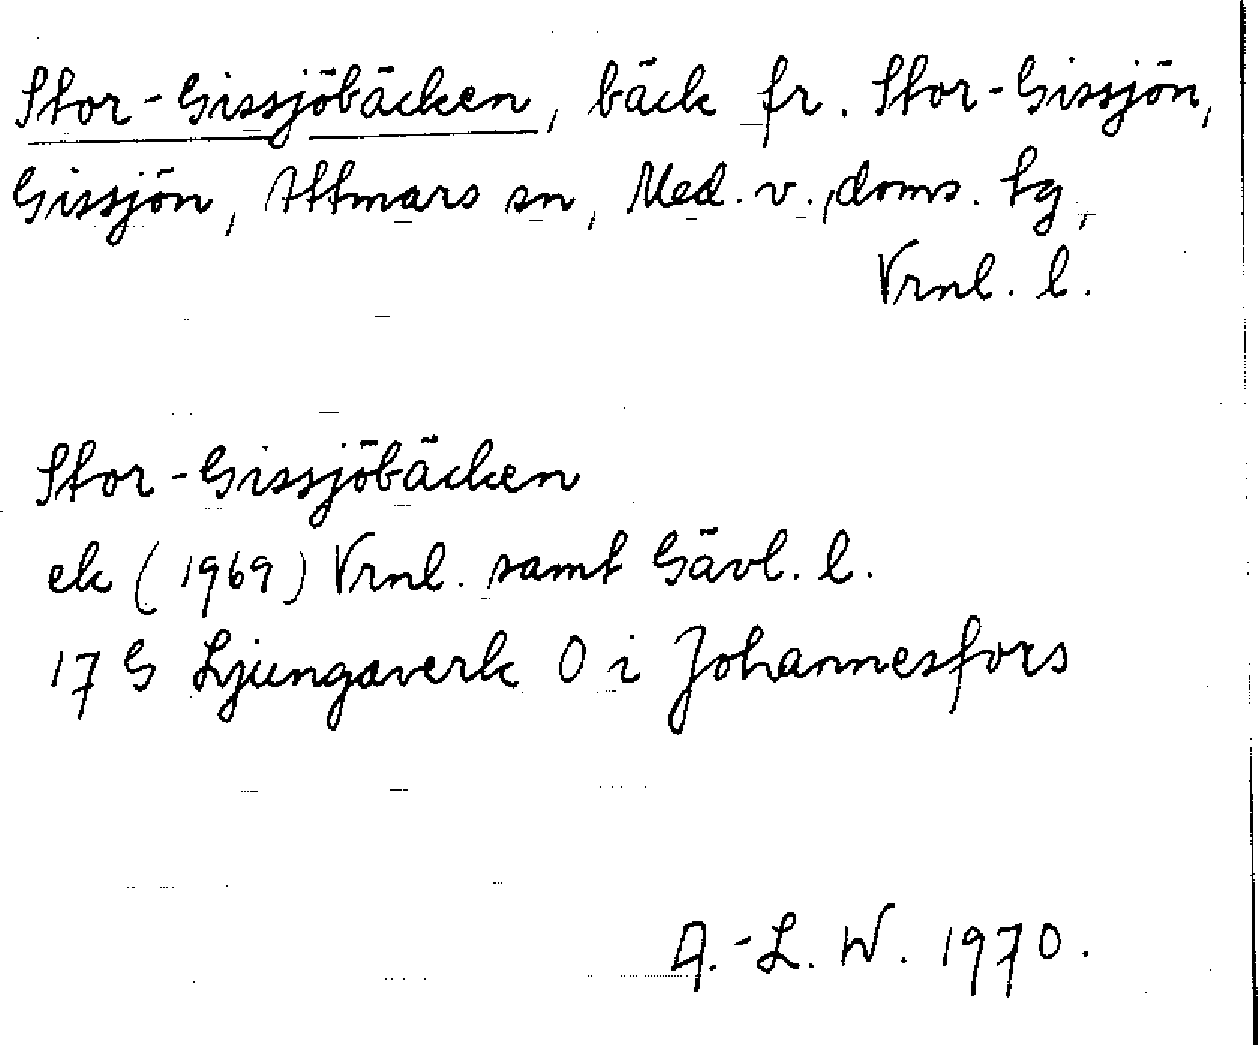 Stor-Gissjöbäcken, bäck fr. Stor-Gissjön,
Gissjön, Attmars sn, Med. v. doms. tg,
Vrnl. l.
Stor-Gissjöbäcken
ek (1969) Vrnl. samt Gävl. l.
17 G Ljungaverk 0 i Johannesfors
A.-L. W. 1970.